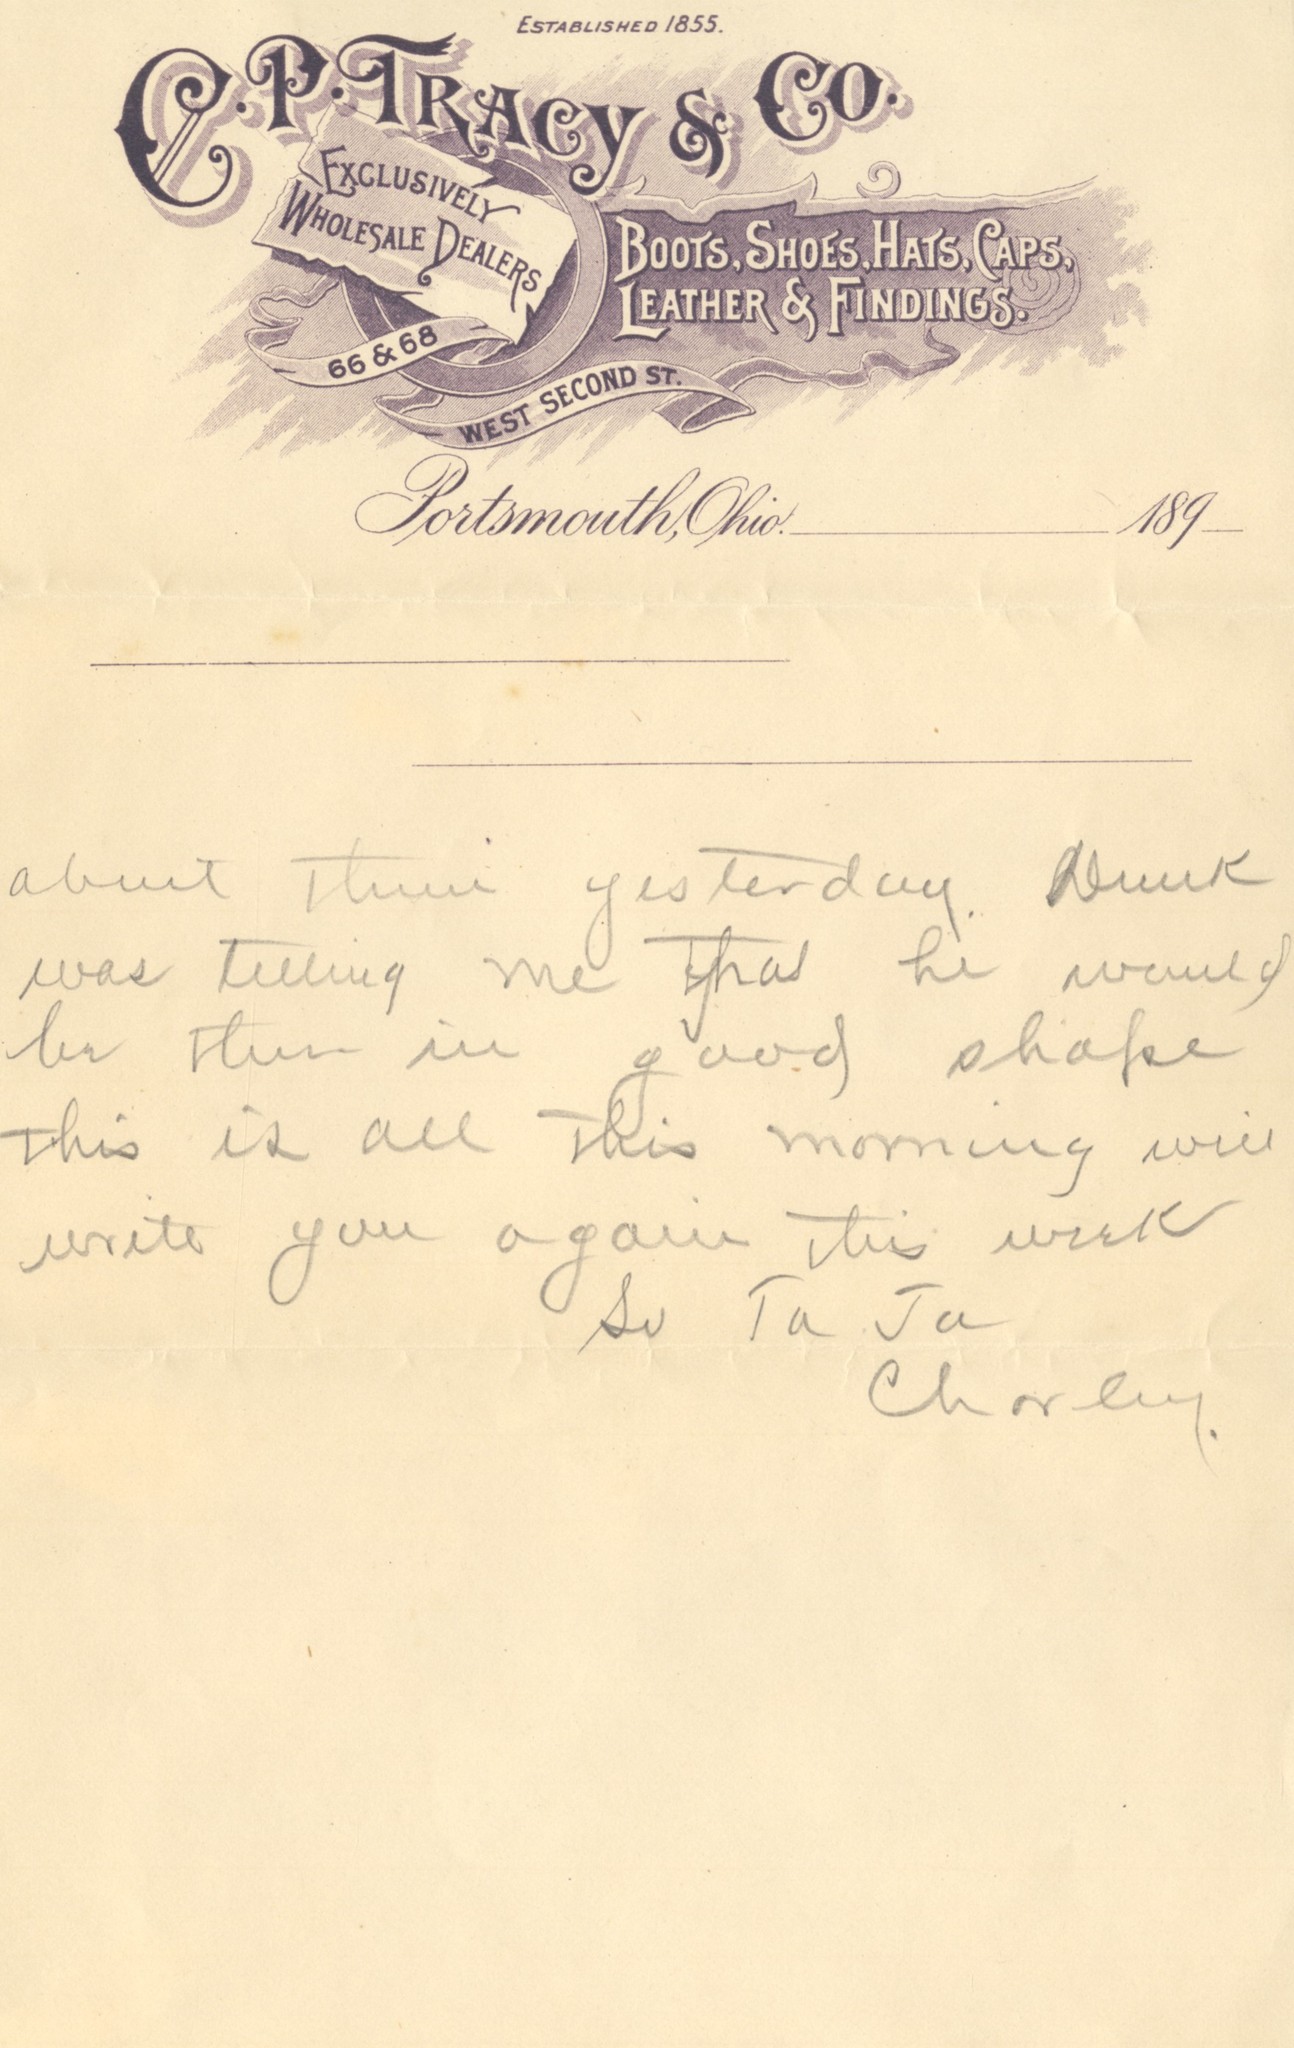 ESTABLISHED 1855.
C. P. TRACY & CO.
EXCLUSIVELY
WHOLESALE DEALERS
BOOTS, SHOES, HATS, CAPS,
LEATHER & FINDINGS.
66 & 68
WEST SECOND ST.
Portsmouth, Ohio. 189
about their yesterday.
was telling me that he would
be there in good shape
this is all this morning will
write you again this week
So Ta Ta
Charley.